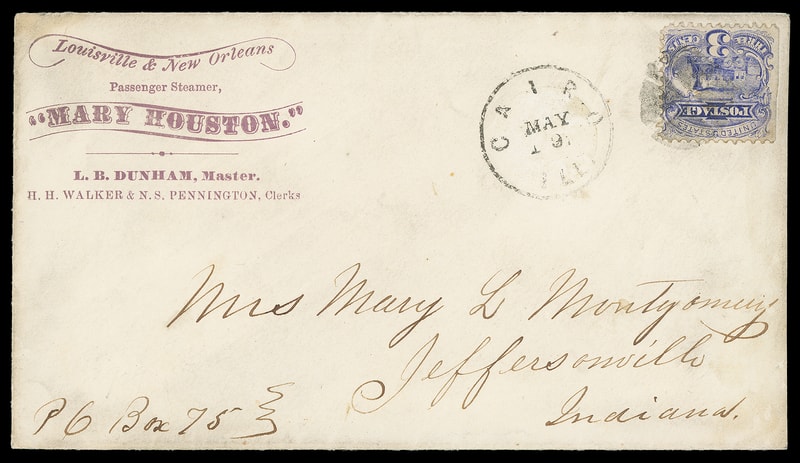 Louisville & New Orleans
Passenger Steamer,
"MARY HOUSTON."
L. B. DUNHAM, Master.
H. H. WALKER & N. S. PENNINGTON, Clerks
CAIRO
MAY
19
ILL.
UNITED STATES
POSTAGE
3
THREE CENTS
Mrs Mary L Montgomery
Jeffersonville
Indiana.
P O Box 75